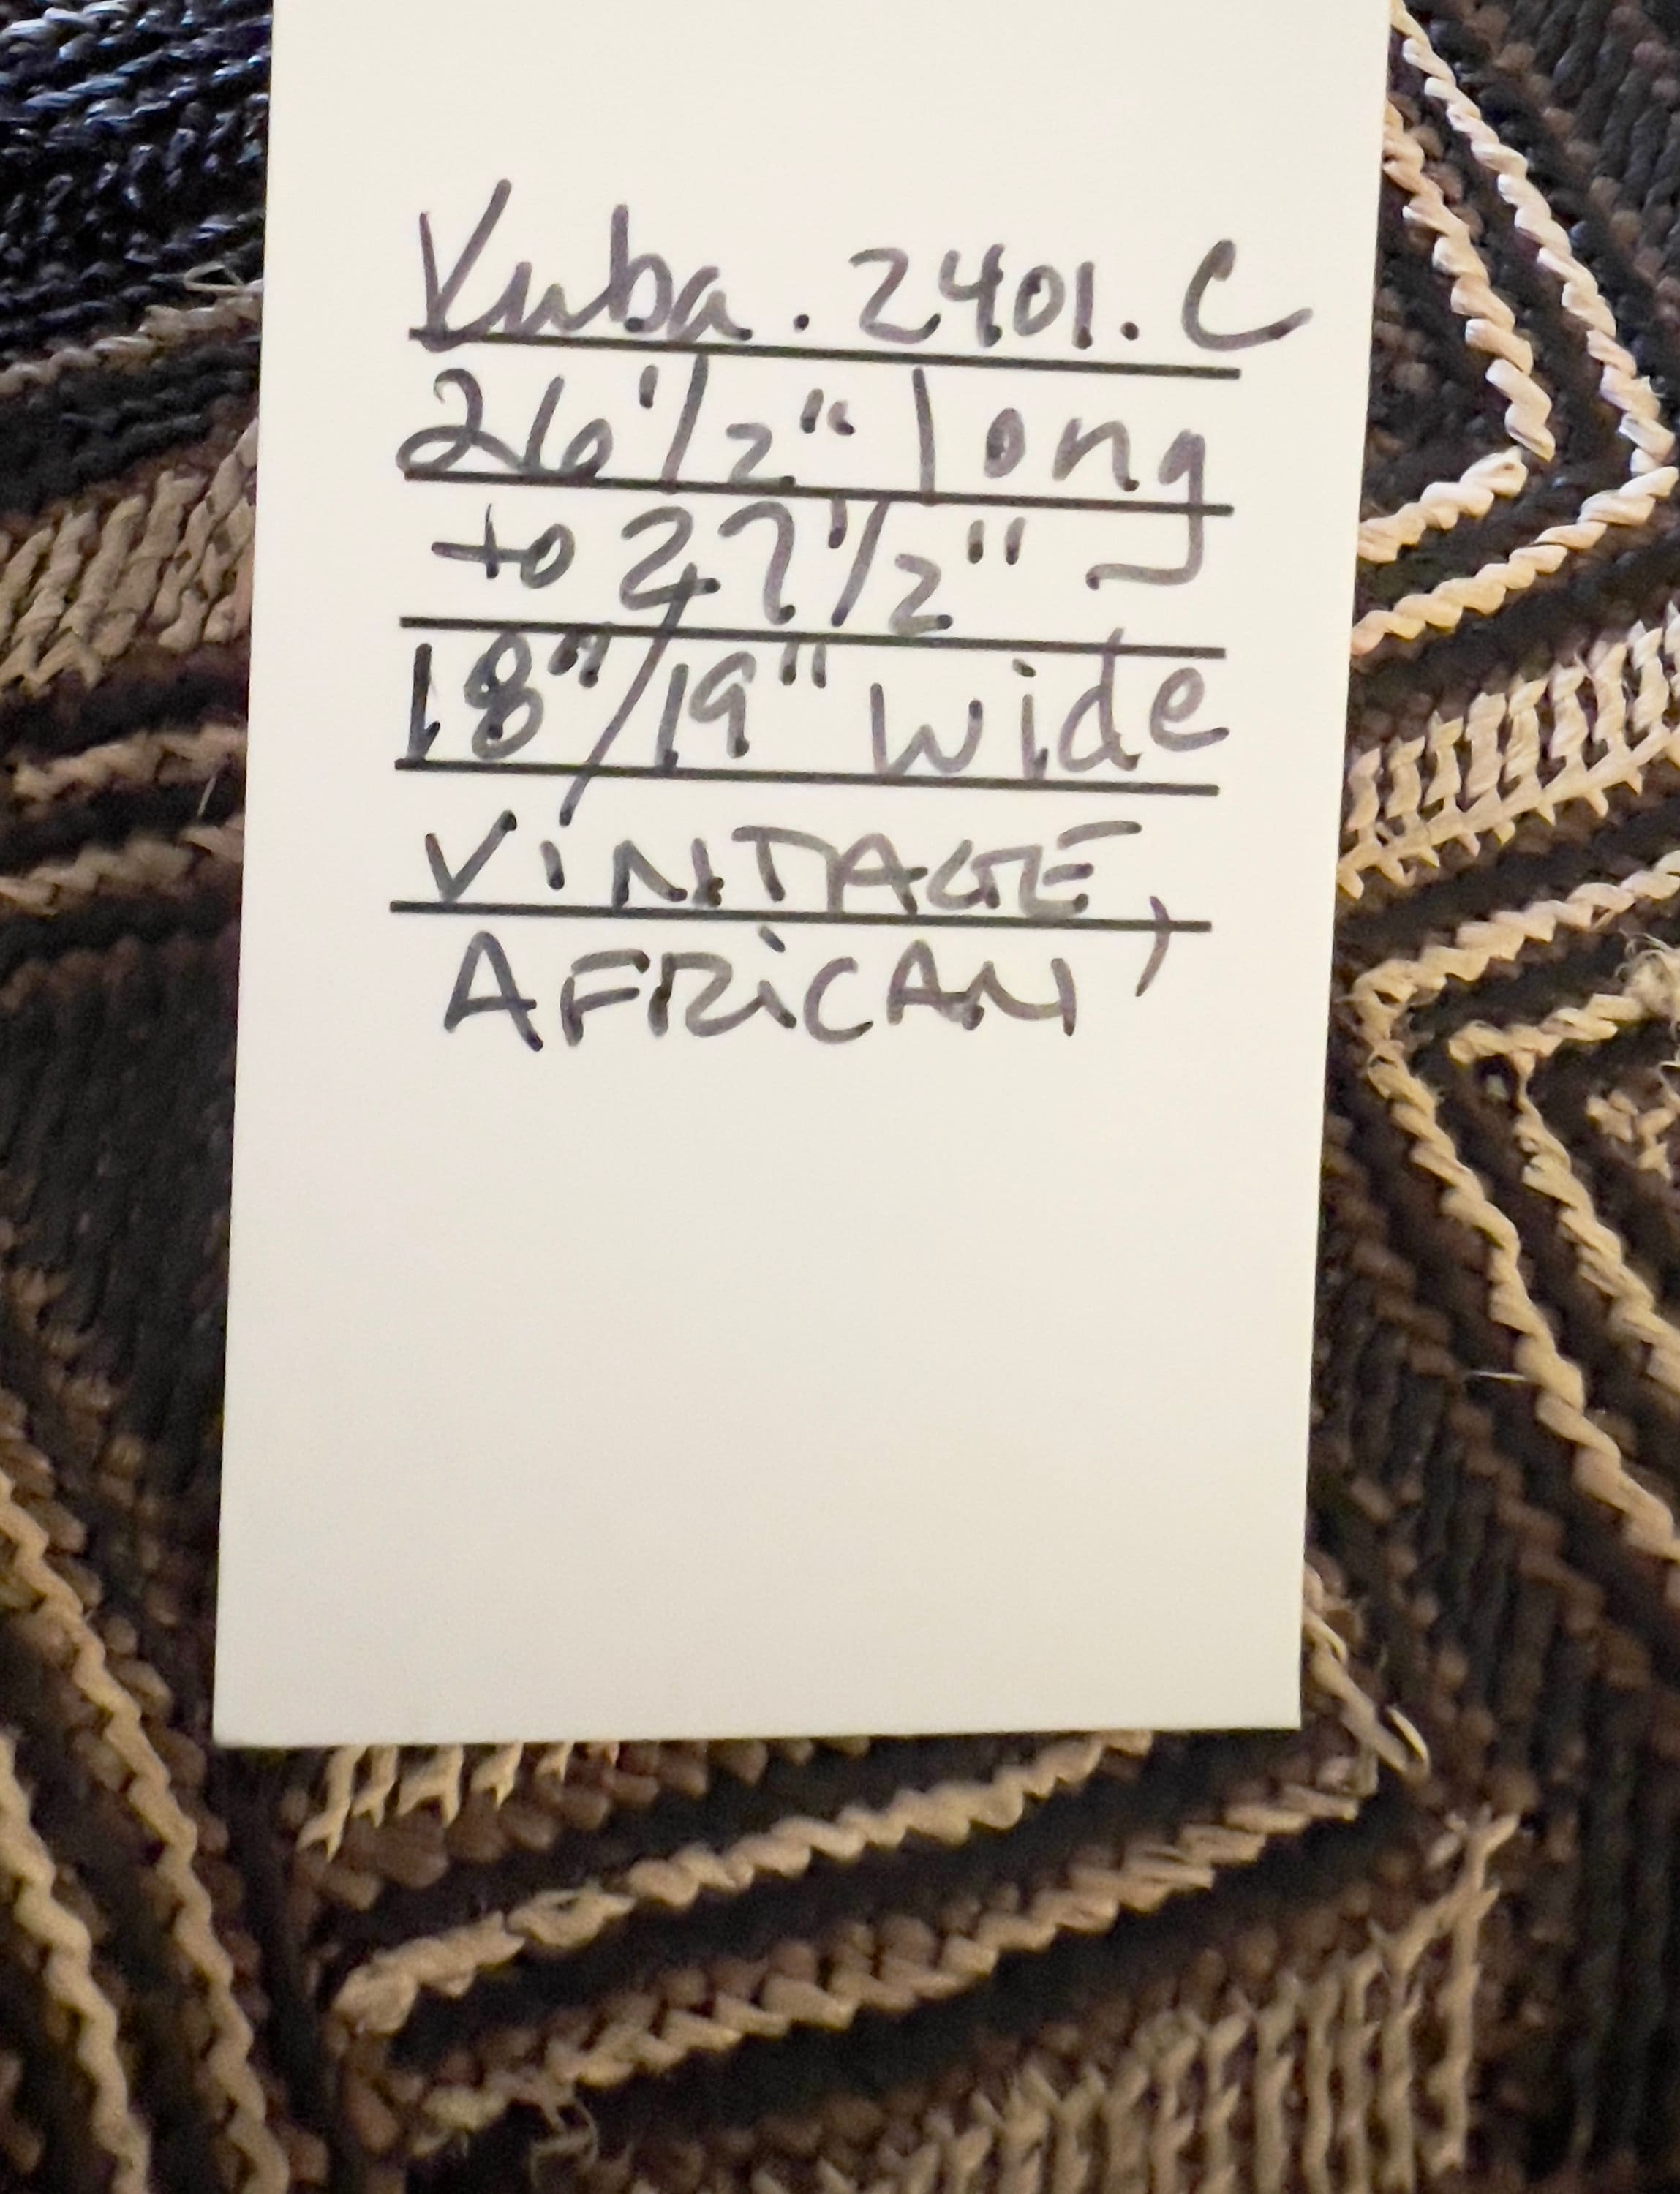 Kuba . 2401. C
26 1/2" long
to 27 1/2"
18"/19" wide
ViNTAGE,
AFRiCAN